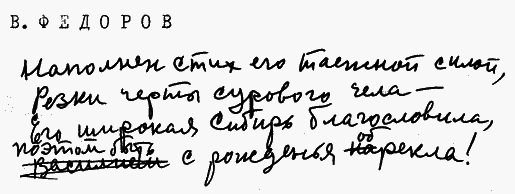 В. ФЕДОРОВ
Наполнен стих его таежной силой,
Резки черты сурового чела —
Его широкая Сибирь благословила,
поэтом быть
Василием с рожденья об нарекла!